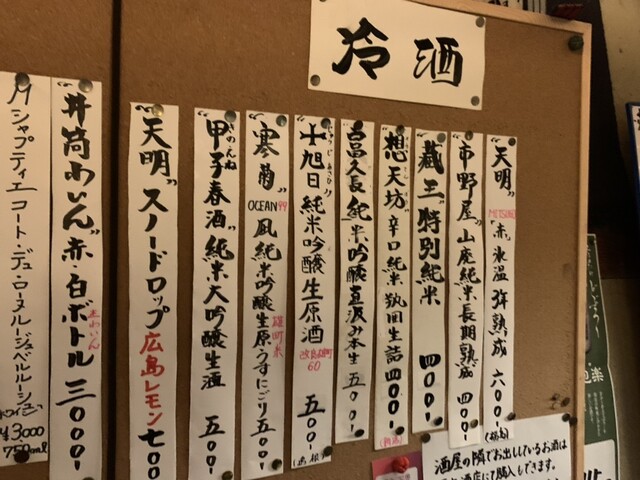 冷酒
"天明" METSUKO "赤" 氷温 弥熟成 六〇〇-
"市野屋" 山廃純米長期熟成 四〇〇-
"蔵王" 特別純米 四〇〇-
"想天坊" 辛口純米 瓶囲生詰 四〇〇-
純米吟醸直汲み本生 五〇〇-
じゅうじ あさひ
"十旭日" 純米吟醸生原酒 改良雄町60 五〇〇-
"寒菊" OCEAN99 凪 純米吟醸生原うすにごり 雄町米 五〇〇-
きのえね
"甲子春酒" 純米大吟醸生酒 五〇〇-
"天明" スノードロップ広島レモン 七〇〇
"井筒わいん" 赤・白ボトル 三〇〇〇-
M シャプティエ コート・デュ・ローヌ・ルージュ ベルルーシュ
¥3000
750ml
酒屋の隣でお出ししているお酒は
酒店にて購入もできます。